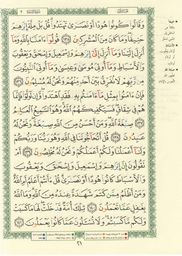 وَقَالُوا۟ كُونُوا۟ هُودًا أَوْ نَصَٰرَىٰ تَهْتَدُوا۟ قُلْ بَلْ مِلَّةَ إِبْرَٰهِـۧمَ
حَنِيفًا وَمَا كَانَ مِنَ ٱلْمُشْرِكِينَ ١٣٥ قُولُوٓا۟ ءَامَنَّا بِٱللَّهِ وَمَآ
أُنزِلَ إِلَيْنَا وَمَآ أُنزِلَ إِلَىٰٓ إِبْرَٰهِـۧمَ وَإِسْمَٰعِيلَ وَإِسْحَٰقَ وَيَعْقُوبَ
وَٱلْأَسْبَاطِ وَمَآ أُوتِىَ مُوسَىٰ وَعِيسَىٰ وَمَآ أُوتِىَ ٱلنَّبِيُّونَ
مِن رَّبِّهِمْ لَا نُفَرِّقُ بَيْنَ أَحَدٍ مِّنْهُمْ وَنَحْنُ لَهُۥ مُسْلِمُونَ ١٣٦
فَإِنْ ءَامَنُوا۟ بِمِثْلِ مَآ ءَامَنتُم بِهِۦ فَقَدِ ٱهْتَدَوا۟ وَّإِن تَوَلَّوْا۟ فَإِنَّمَا
هُمْ فِى شِقَاقٍ فَسَيَكْفِيكَهُمُ ٱللَّهُ وَهُوَ ٱلسَّمِيعُ ٱلْعَلِيمُ ١٣٧
صِبْغَةَ ٱللَّهِ وَمَنْ أَحْسَنُ مِنَ ٱللَّهِ صِبْغَةً وَنَحْنُ لَهُۥ
عَٰبِدُونَ ١٣٨ قُلْ أَتُحَآجُّونَنَا فِى ٱللَّهِ وَهُوَ رَبُّنَا وَرَبُّكُمْ
وَلَنَآ أَعْمَٰلُنَا وَلَكُمْ أَعْمَٰلُكُمْ وَنَحْنُ لَهُۥ مُخْلِصُونَ ١٣٩ أَمْ
تَقُولُونَ إِنَّ إِبْرَٰهِـۧمَ وَإِسْمَٰعِيلَ وَإِسْحَٰقَ وَيَعْقُوبَ
وَٱلْأَسْبَاطَ كَانُوا۟ هُودًا أَوْ نَصَٰرَىٰ قُلْ ءَأَنتُمْ أَعْلَمُ أَمِ ٱللَّهُ
وَمَنْ أَظْلَمُ مِمَّن كَتَمَ شَهَٰدَةً عِندَهُۥ مِنَ ٱللَّهِ وَمَا ٱللَّهُ
بِغَٰفِلٍ عَمَّا تَعْمَلُونَ ١٤٠ تِلْكَ أُمَّةٌ قَدْ خَلَتْ لَهَا مَا كَسَبَتْ
وَلَكُم مَّا كَسَبْتُمْ وَلَا تُسْـَٔلُونَ عَمَّا كَانُوا۟ يَعْمَلُونَ ١٤١
٢١